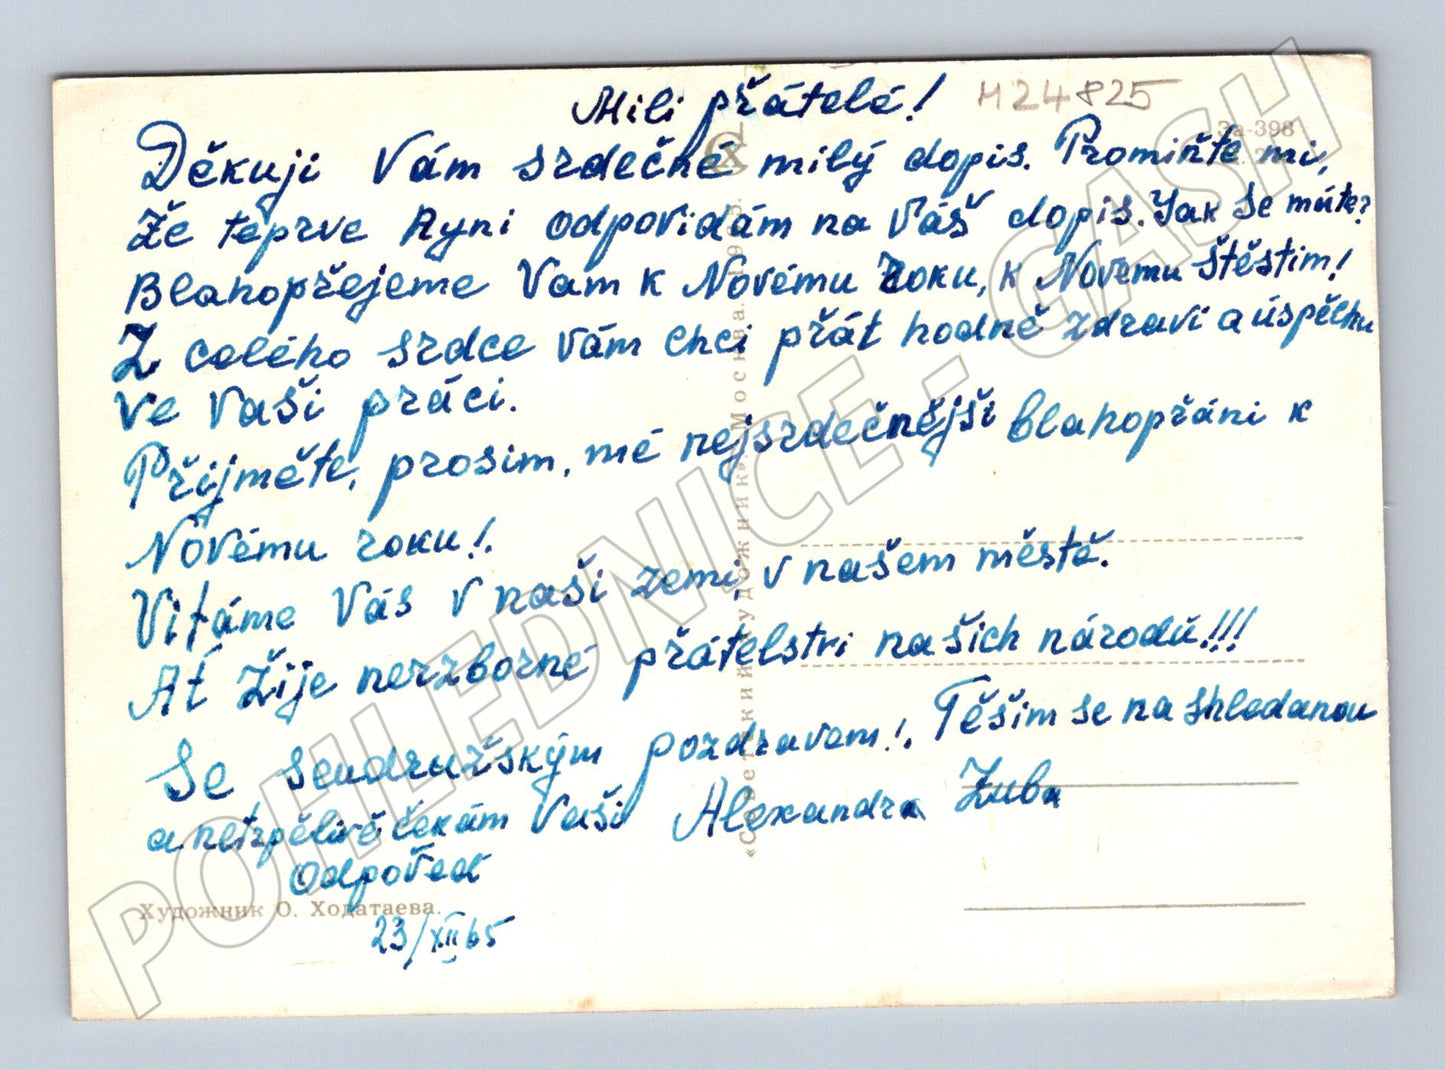 Mili přátelé!
M24825
За-398
Děkuji Vám srdečně milý dopis. Promiňte mi,
že teprve Nyni odpovidám na Váš dopis. Jak se máte?
Blahopřejeme Vam k Novému roku, k Novemu štěstim!
Z celého srdce Vám chci přát hodně zdravi a úspěchu
ve Vaši práci.
Přijměte, prosim, mé nejsrdečnějši blahopřáni k
Novému roku!.
Vitáme Vás v naši zemi, v našem městě.
Ať žije nerzborné přátelstvi našich národů!!!
Se soudružským pozdravem!. Těšim se na shledanou
a netrpělivě čekám Vaši Alexandra Zuba
Odpověd
23/XII 65
Художник О. Ходатаева.
«Советский художник». Москва. 1965.
POHLEDNICE - GASH